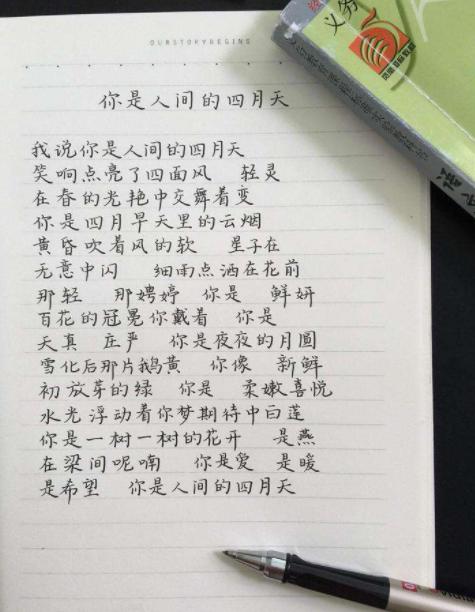 OURSTORYBEGINS
你是人间的四月天
我说你是人间的四月天
笑响点亮了四面风 轻灵
在春的光艳中交舞着变
你是四月早天里的云烟
黄昏吹着风的软 星子在
无意中闪 细雨点洒在花前
那轻 那娉婷 你是 鲜妍
百花的冠冕你戴着 你是
天真 庄严 你是夜夜的月圆
雪化后那片鹅黄 你像 新鲜
初放芽的绿 你是 柔嫩喜悦
水光浮动着你梦期待中白莲
你是一树一树的花开 是燕
在梁间呢喃 你是爱 是暖
是希望 你是人间的四月天
义务
义务教育课程标准实验教科书